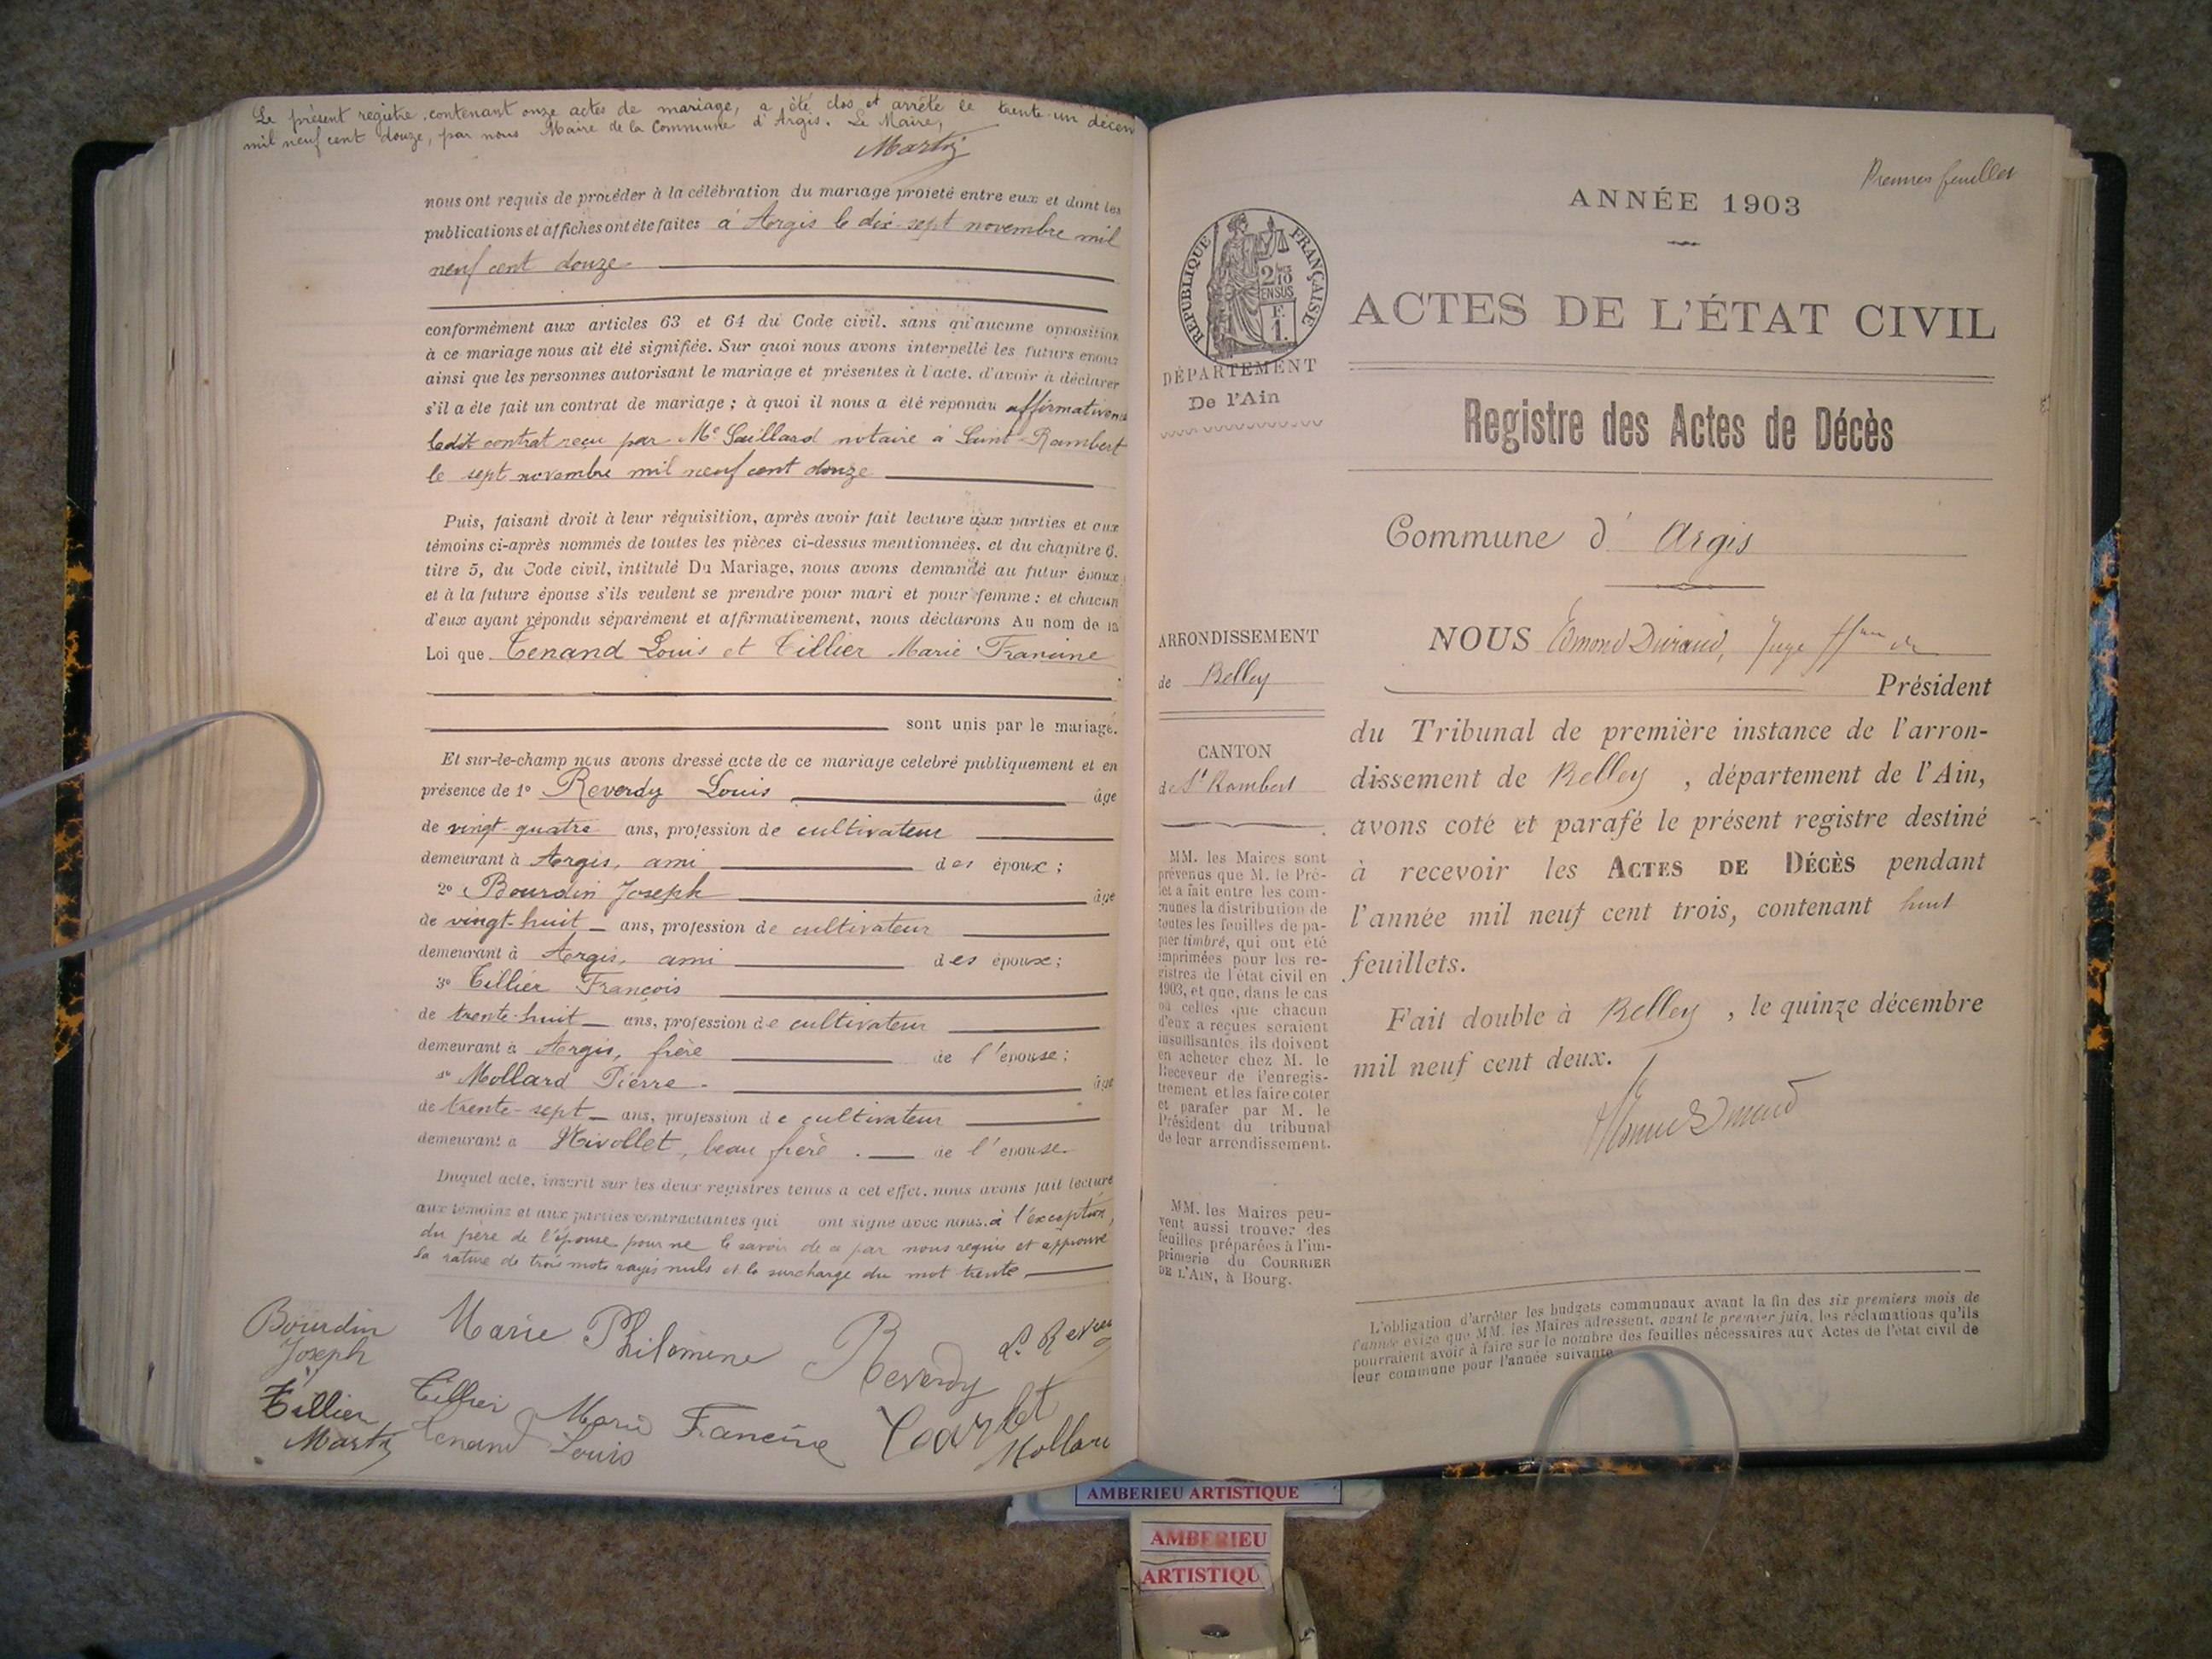 Le présent registre, contenant onze actes de mariage, a été clos et arrêté le trente-un décem
mil neuf cent douze, par nous Maire de la Commune d'Argis. Le Maire,
nous ont requis de procéder à la célébration du mariage projeté entre eux et dont les
publications et affiches ont été faites à Argis le dix-sept novembre mil
neuf cent douze
conformément aux articles 63 et 64 du Code civil, sans qu'aucune opposition
à ce mariage nous ait été signifiée. Sur quoi nous avons interpellé les futurs époux
ainsi que les personnes autorisant le mariage et présentes à l'acte, d'avoir à déclarer
s'il a été fait un contrat de mariage ; à quoi il nous a été répondu affirmativem
ledit contrat reçu par Me notaire à Saint-Rambert
le sept novembre mil neuf cent douze
Puis, faisant droit à leur réquisition, après avoir fait lecture aux parties et aux
témoins ci-après nommés de toutes les pièces ci-dessus mentionnées, et du chapitre 6,
titre 5, du Code civil, intitulé Du Mariage, nous avons demandé au futur époux
et à la future épouse s'ils veulent se prendre pour mari et pour femme ; et chacun
d'eux ayant répondu séparément et affirmativement, nous déclarons Au nom de la
Loi que Tenand Louis et Tillier Marie Francine
sont unis par le mariage.
Et sur-le-champ nous avons dressé acte de ce mariage célébré publiquement et en
présence de 1° Reverdy Louis âgé
de vingt-quatre ans, profession de cultivateur
demeurant à Argis, ami des époux ;
2° Bourdin Joseph âgé
de vingt-huit ans, profession de cultivateur
demeurant à Argis, ami des époux ;
3° Tillier François
de trente-huit ans, profession de cultivateur
demeurant à Argis, frère de l'épouse ;
4° Mollard Pierre âgé
de trente-sept ans, profession de cultivateur
demeurant à Nivollet, beau frère de l'épouse
Duquel acte, inscrit sur les deux registres tenus à cet effet, nous avons fait lecture
aux témoins et aux parties contractantes qui ont signé avec nous, à l'exception
du père de l'épouse pour ne le savoir de ce par nous requis et approuvé
la rature de trois mots rayés nuls et la surcharge du mot trente
Bourdin Joseph
Marie Philomène
Reverdy
Tillier
Tillier Marie Francine
Tenand Louis
Mollar
Premier feuillet
ANNÉE 1903
RÉPUBLIQUE FRANÇAISE
ACTES DE L'ÉTAT CIVIL
DÉPARTEMENT
De l'Ain
Registre des Actes de Décès
Commune d' Argis
ARRONDISSEMENT
de Belley
CANTON
de St Rambert
NOUS Edmond Durand, Juge
Président
du Tribunal de première instance de l'arron-
dissement de Belley , département de l'Ain,
avons coté et parafé le présent registre destiné
à recevoir les ACTES DE DÉCÈS pendant
l'année mil neuf cent trois, contenant huit
feuillets.
Fait double à Belley , le quinze décembre
mil neuf cent deux.
MM. les Maires sont
prévenus que M. le Pré-
fet a fait entre les com-
munes la distribution de
toutes les feuilles de pa-
pier timbré, qui ont été
imprimées pour les re-
gistres de l'état civil en
1903, et que, dans le cas
où celles que chacun
d'eux a reçues seraient
insuffisantes, ils doivent
en acheter chez M. le
Receveur de l'enregis-
trement et les faire coter
et parafer par M. le
Président du tribunal
de leur arrondissement.
MM. les Maires peu-
vent aussi trouver des
feuilles préparées à l'im-
primerie du COURRIER
DE L'AIN, à Bourg.
L'obligation d'arrêter les budgets communaux avant la fin des six premiers mois de
l'année exige que MM. les Maires adressent, avant le premier juin, les réclamations qu'ils
pourraient avoir à faire sur le nombre des feuilles nécessaires aux Actes de l'état civil de
leur commune pour l'année suivante.
AMBERIEU ARTISTIQUE
AMBERIEU
ARTISTIQU